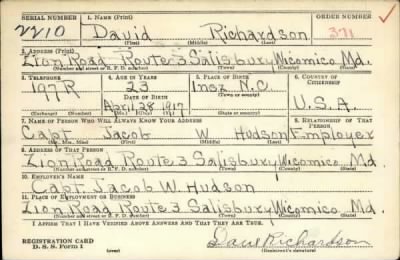 SERIAL NUMBER 1. NAME (Print) ORDER NUMBER
2210 David Richardson 371
(First) (Middle) (Last)
2. ADDRESS (Print)
Zion Road Route 3 Salisbury Wicomico Md.
(Number and street or R. F. D. number) (Town) (County) (State)
3. TELEPHONE 4. AGE IN YEARS 5. PLACE OF BIRTH 6. COUNTRY OF CITIZENSHIP
197R 23 Inez N.C.
DATE OF BIRTH (Town or county)
April 28 1917 U.S.A.
(Exchange) (Number) (Mo.) (Day) (Yr.) (State or country)
7. NAME OF PERSON WHO WILL ALWAYS KNOW YOUR ADDRESS 8. RELATIONSHIP OF THAT PERSON
Capt. Jacob W Hudson Employer
(Mr., Mrs., Miss) (First) (Middle) (Last)
9. ADDRESS OF THAT PERSON
Zion Road Route 3 Salisbury Wicomico Md.
(Number and street or R. F. D. number) (Town) (County) (State)
10. EMPLOYER'S NAME
Capt. Jacob W. Hudson
11. PLACE OF EMPLOYMENT OR BUSINESS
Zion Road Route 3 Salisbury Wicomico Md.
(Number and street or R. F. D. number) (Town) (County) (State)
I AFFIRM THAT I HAVE VERIFIED ABOVE ANSWERS AND THAT THEY ARE TRUE.
REGISTRATION CARD
D. S. S. FORM 1 Richardson
(Registrant's signature)